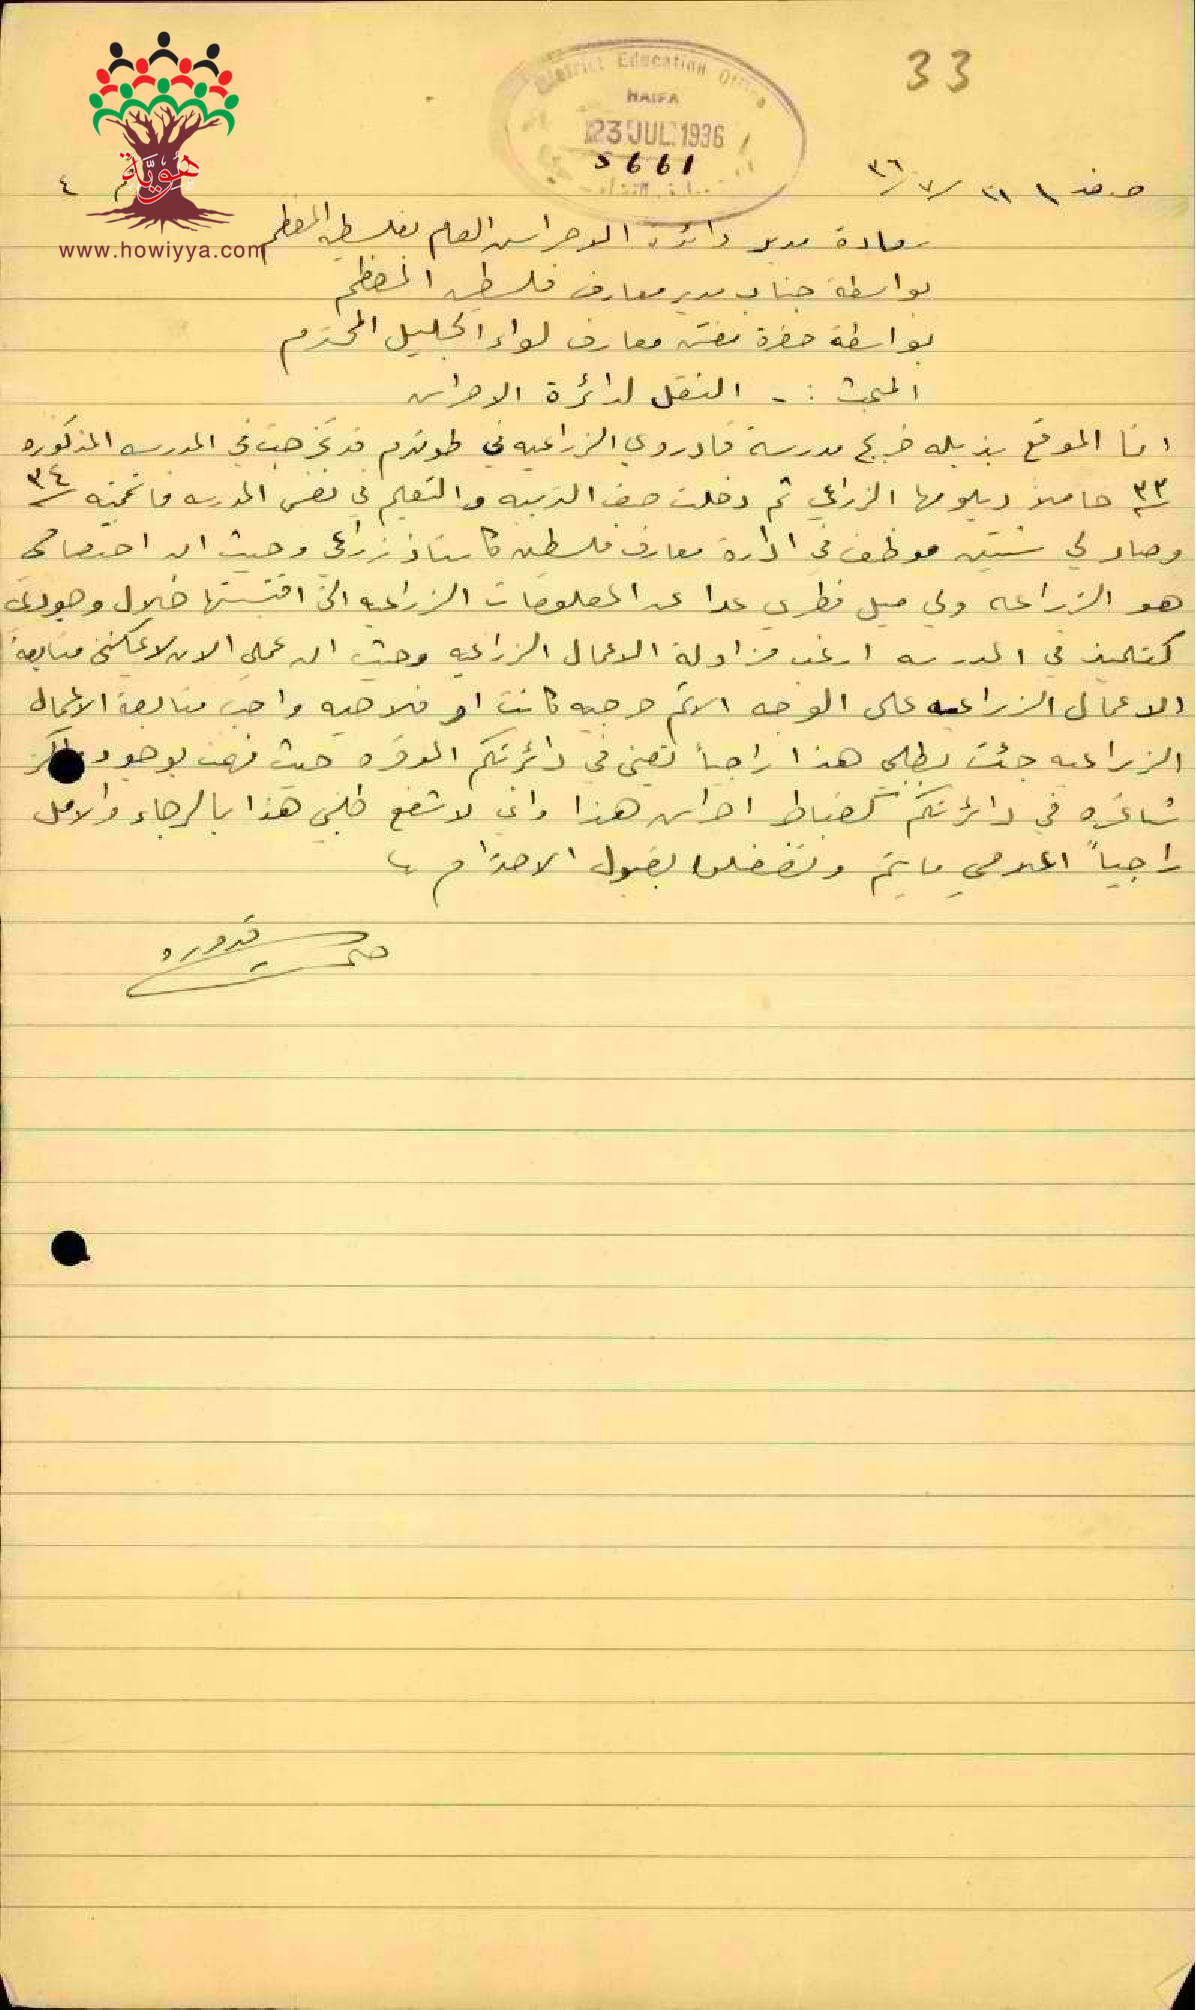 33
District Education Office
HAIFA
23 JUL 1936
5661
هوية
www.howiyya.com
صفد ٢١ / ٧ / ٣٦
سعادة مدير دائرة الاحراس العام بفلسطين المعظم
بواسطة جناب مدير معارف فلسطين المعظم
بواسطة حضرة مفتش معارف لواء الجليل المحترم
المبحث :- النقل لدائرة الاحراس
انا الموقع بذيله خريج مدرسة خادوري الزراعيه في طولكرم قد تخرجت في المدرسه المذكوره
٣٣ حاملا دبلومها الزراعي ثم دخلت صف التربيه والتعليم في نفس المدرسه فانهيته ٣٤
وصار لي سنتين موظف في ادارة معارف فلسطين كاستاذ زراعي وحيث ان اختصاصي
هو الزراعه ولي ميل فطري عدا عن المعلومات الزراعيه التي اقتبستها خلال وجودي
كتلميذ في المدرسه ارغب مزاولة الاعمال الزراعيه وحيث ان عملي الان لا يمكنني متابعة
الاعمال الزراعيه على الوجه الاتم حرجيه كانت او فلاحيه واحب متابعة الاعمال
الزراعيه جئت بطلبي هذا راجياً تعيني في دائرتكم الموقره حيث فهمت بوجود مراكز
شاغره في دائرتكم كضباط احراس هذا واني لاشفع طلبي هذا بالرجاء والامل
راجياً اعلامي ما يتم وتفضلوا بقبول الاحترام
قدوره